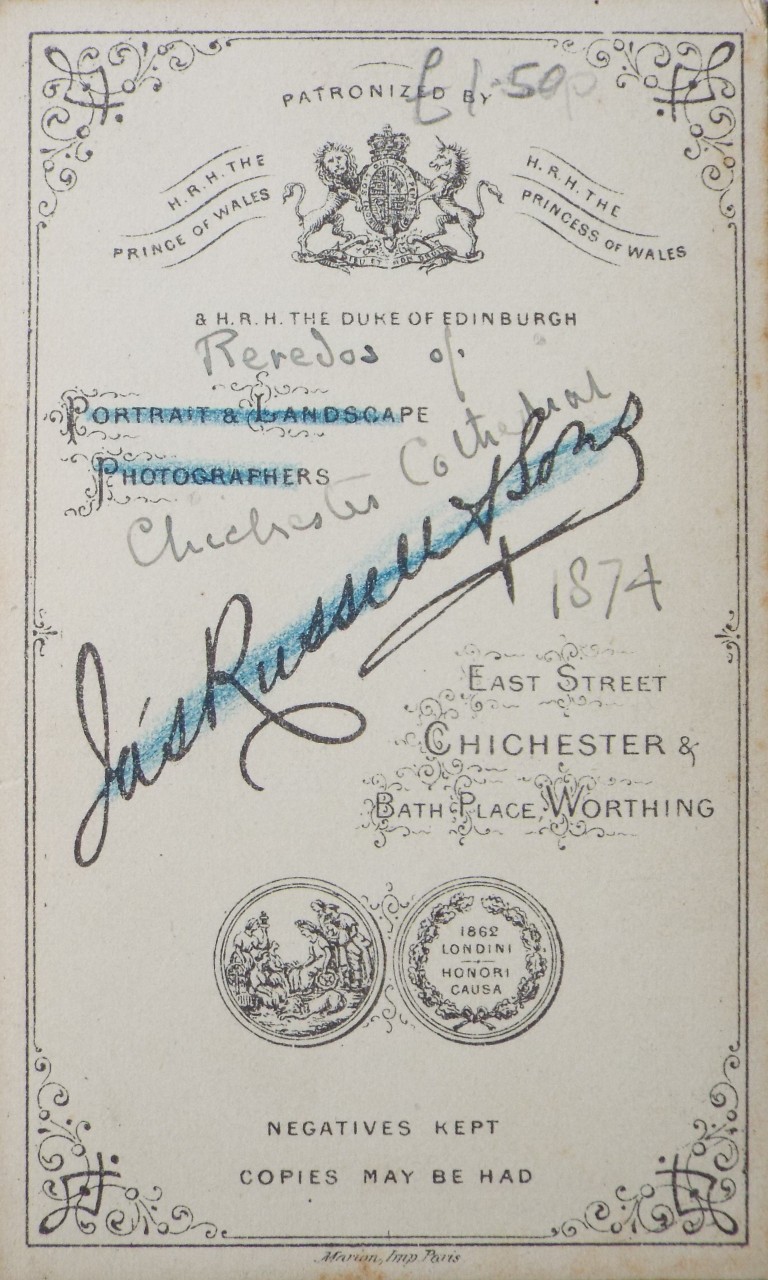 £1.50p
PATRONIZED BY
H.R.H. THE
PRINCE OF WALES
H.R.H. THE
PRINCESS OF WALES
& H.R.H. THE DUKE OF EDINBURGH
Reredos of
PORTRAIT & LANDSCAPE
PHOTOGRAPHERS
Chichester Cathedral
Jas Russell & Sons
1874
EAST STREET
CHICHESTER &
BATH PLACE, WORTHING
1862
LONDINI
HONORI
CAUSA
NEGATIVES KEPT
COPIES MAY BE HAD
Marion, Imp. Paris